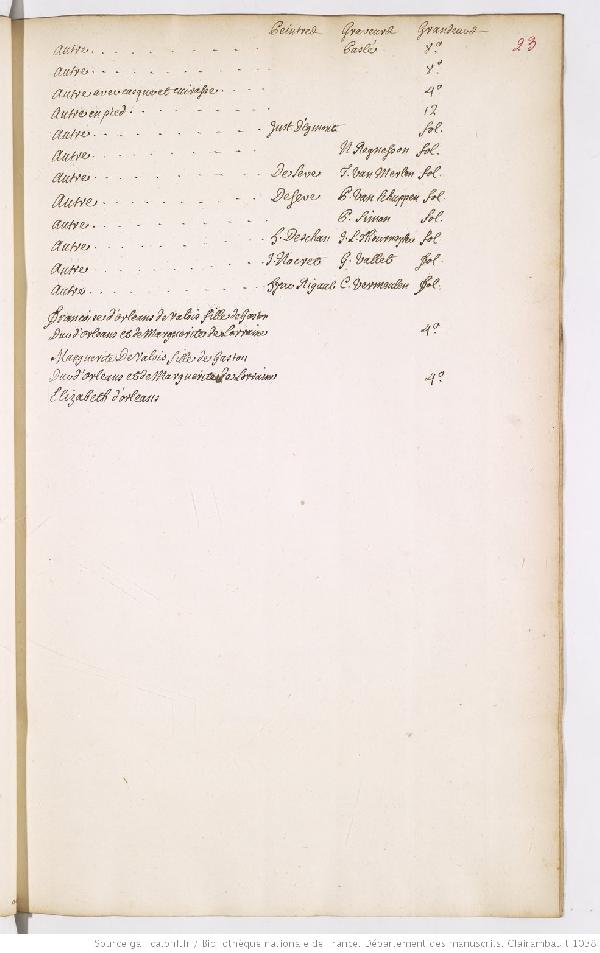 Peintres Graveurs Grandeurs
23
Autre . . . . . . . . Caslé 8º
Autre . . . . . . . . 8º
Autre avec casque et cuirasse . . . . 4º
Autre en pied . . . . . . . 12
Autre . . . . . . . . Just d'egmont fol.
Autre . . . . . . . . N Regnesson fol.
Autre . . . . . . . . De Seve J. Van Merlen fol.
Autre . . . . . . . . De Seve P. Van Schuppen fol.
Autre . . . . . . . . P. Simon fol.
Autre . . . . . . . . h. Deschan J. L. Thourneysen fol
Autre . . . . . . . . J. Nocret G. Vallet fol.
Autre . . . . . . . . hyac Rigault C. Vermeulen fol.
Françoise d'orleans de Valois fille de Gaston
Duc d'orleans et de Marguerite de Lorraine 4º
Marguerite De Valois, fille de Gaston
Duc d'orleans et de Marguerite de Lorraine 4º
Elizabeth d'orleans
Source gallica.bnf.fr / Bibliothèque nationale de France. Département des manuscrits. Clairambault 1038